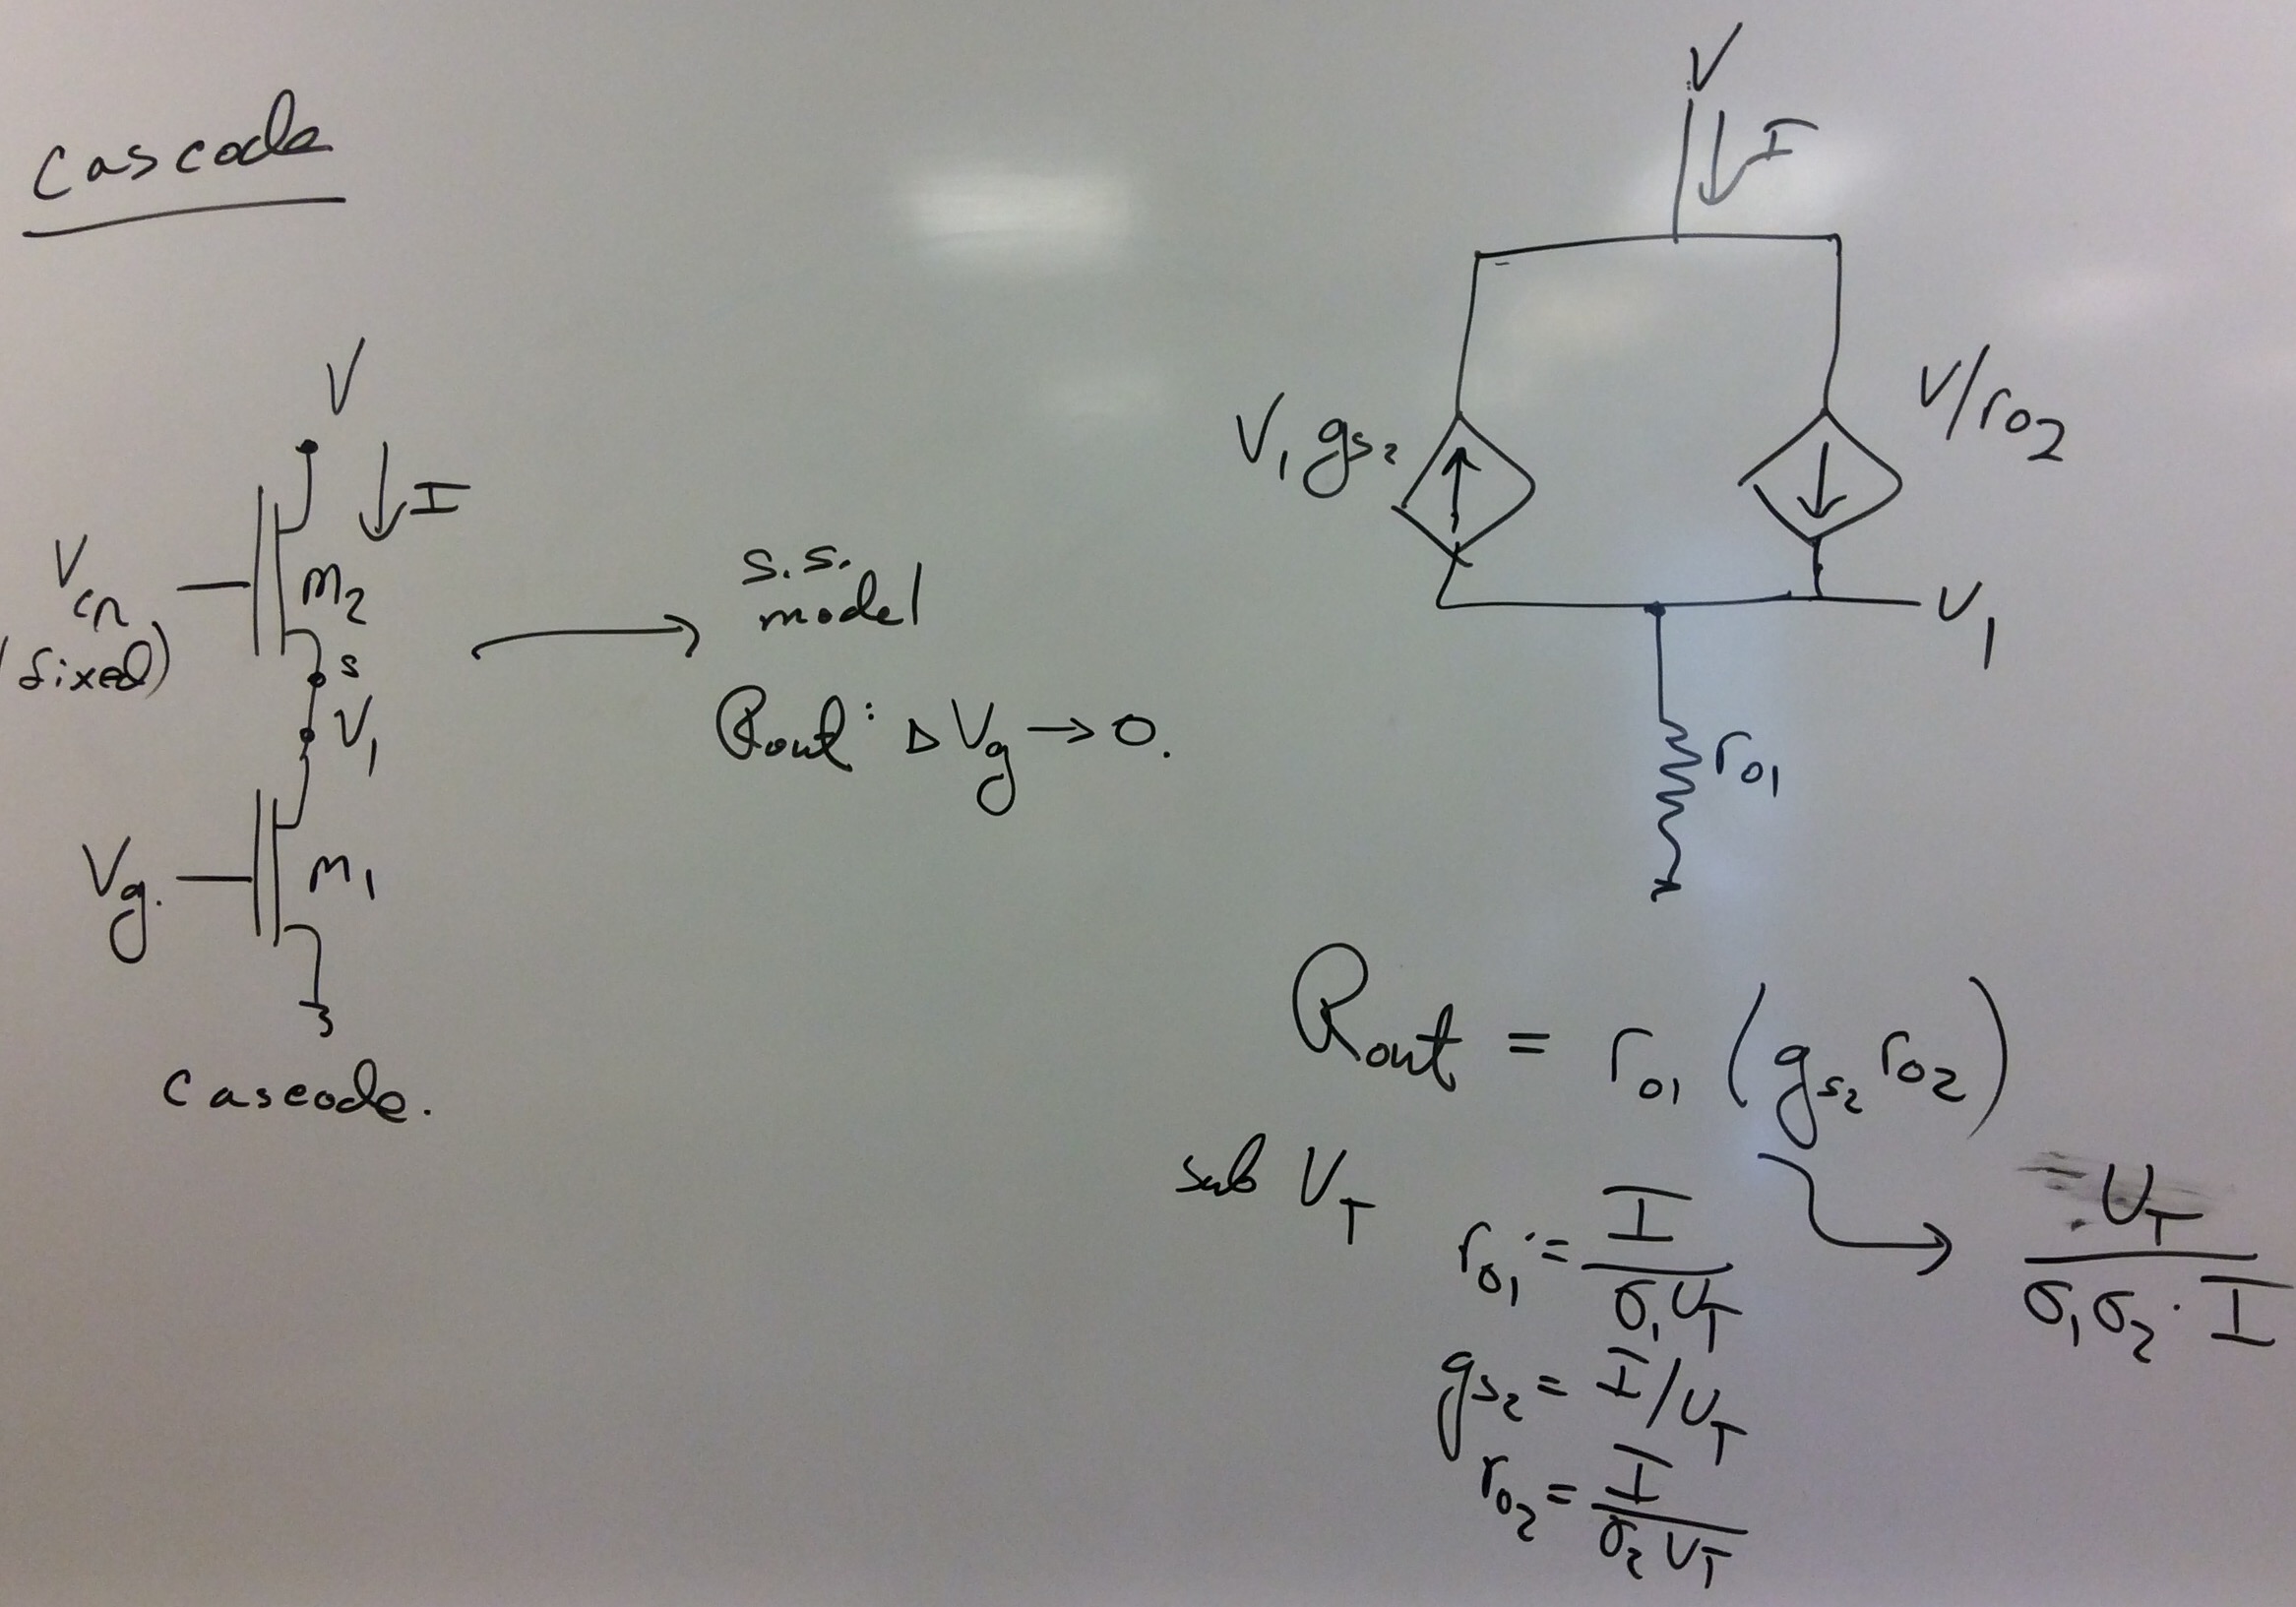 Cascode
V
I
V_cn
(fixed)
M_2
s
V_1
V_g.
M_1
Cascode.
s.s.
model
Rout: ΔV_g → 0.
V
I
V_1 g_s2
V/r_o2
V_1
r_o1
Rout = r_o1 (g_s2 r_o2)
sub V_T
r_o1 = I / σ_1 U_T
U_T / σ_1 σ_2 · I
g_s2 = I/U_T
r_o2 = I / σ_2 U_T